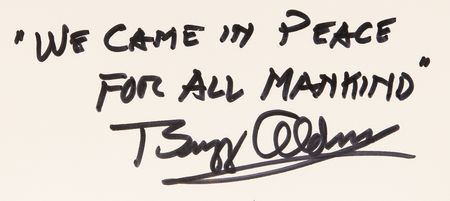 "WE CAME IN PEACE
FOR ALL MANKIND"
Buzz Aldrin